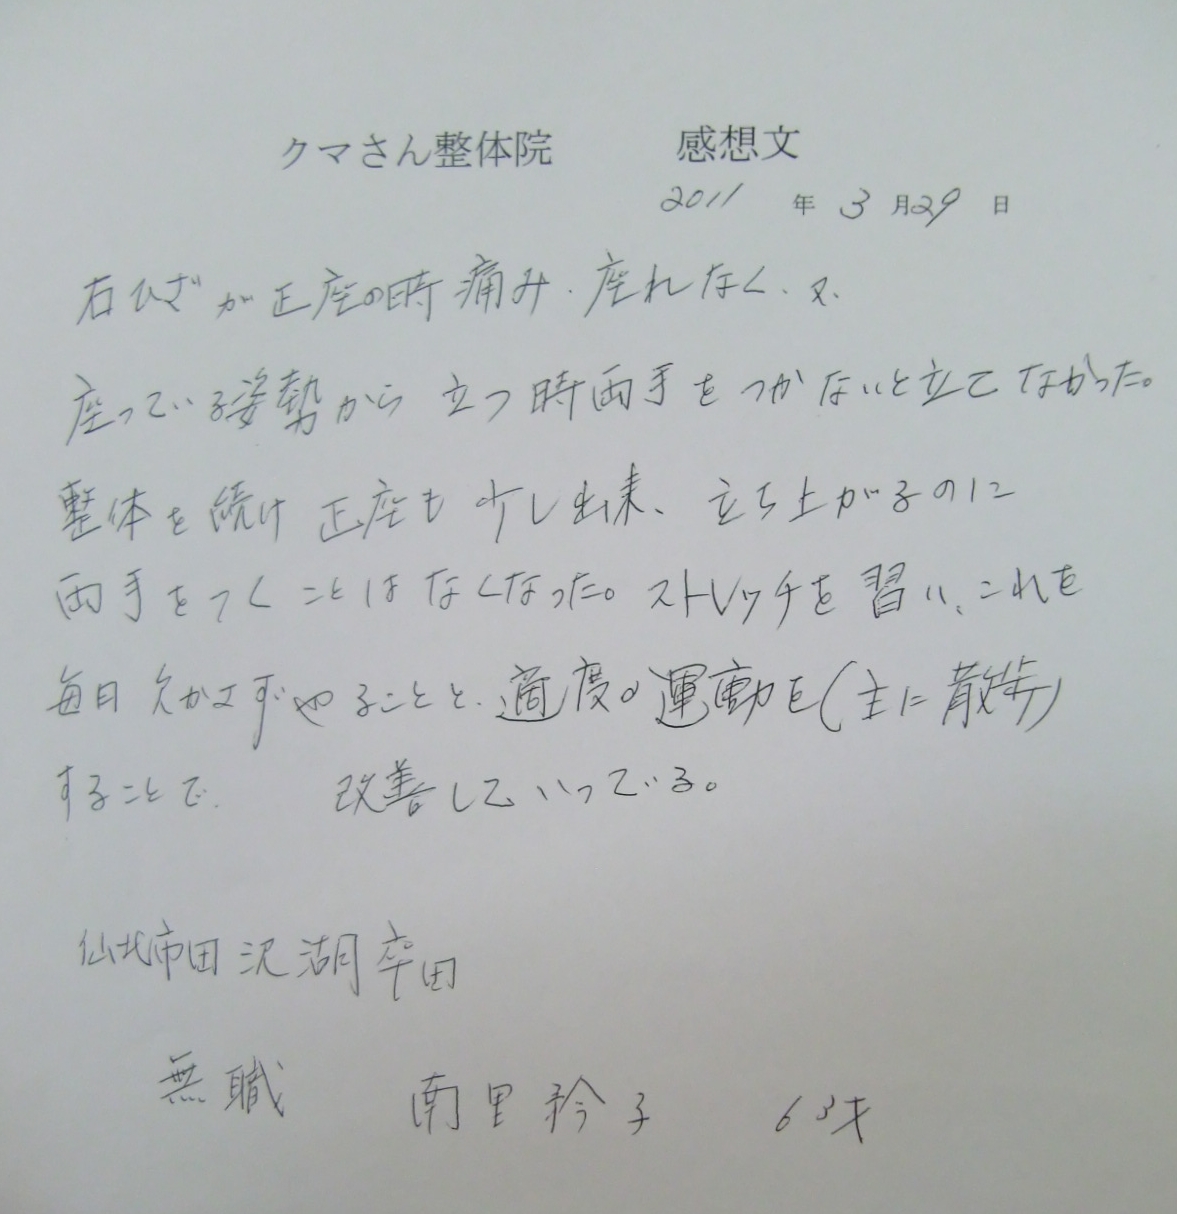 クマさん整体院 感想文
2011年3月29日
右ひざが正座の時痛み、座れなく、又、
座っている姿勢から立つ時両手をつかないと立てなかった。
整体を続け正座も少し出来、立ち上がるのに
両手をつくことはなくなった。ストレッチを習い、これを
毎日欠かさずやることと、適度の運動を(主に散歩)
することで、改善していっている。
仙北市田沢湖卒田
無職 南里矜子 63才